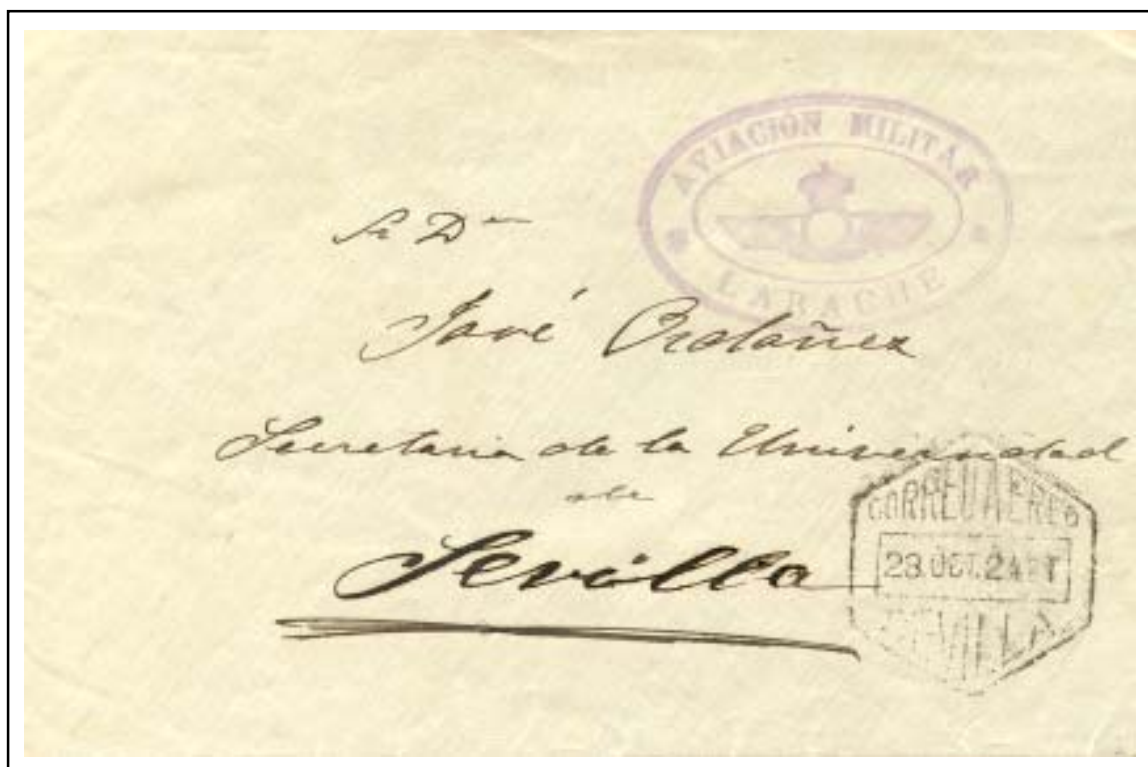 AVIACIÓN MILITAR
LARACHE
Sr Dn
José Ordoñez
Secretaria de la Universidad
de
Sevilla
CORREO AEREO
28.OCT.24
SEVILLA